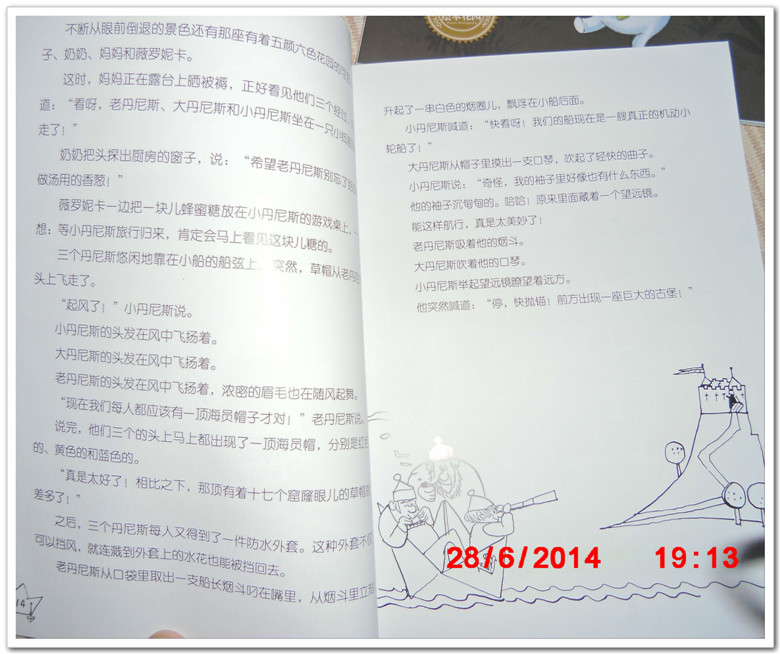 绘本花园
不断从眼前倒退的景色还有那座有着五颜六色花园的
子、奶奶、妈妈和薇罗妮卡。
这时，妈妈正在露台上晒被褥，正好看见他们三个经过，
道：“看呀，老丹尼斯、大丹尼斯和小丹尼斯坐在一只小纸
走了！”
奶奶把头探出厨房的窗子，说：“希望老丹尼斯别忘了给
做汤用的香葱！”
薇罗妮卡一边把一块儿蜂蜜糖放在小丹尼斯的游戏桌上，一
想：等小丹尼斯旅行归来，肯定会马上看见这块儿糖的。
三个丹尼斯悠闲地靠在小船的船弦上。突然，草帽从老丹尼
头上飞走了。
“起风了！”小丹尼斯说。
小丹尼斯的头发在风中飞扬着。
大丹尼斯的头发在风中飞扬着。
老丹尼斯的头发在风中飞扬着，浓密的眉毛也在随风起舞。
“现在我们每人都应该有一顶海员帽子才对！”老丹尼斯说。
说完，他们三个的头上马上都出现了一顶海员帽，分别是红
的、黄色的和蓝色的。
“真是太好了！相比之下，那顶有着十七个窟窿眼儿的草帽
差多了！”
之后，三个丹尼斯每人又得到了一件防水外套。这种外套不仅
可以挡风，就连溅到外套上的水花也能被挡回去。
老丹尼斯从口袋里取出一支船长烟斗叼在嘴里，从烟斗里立刻
14
升起了一串白色的烟圈儿，飘浮在小船后面。
小丹尼斯喊道：“快看呀！我们的船现在是一艘真正的机动小
轮船了！”
大丹尼斯从帽子里摸出一支口琴，吹起了轻快的曲子。
小丹尼斯说：“奇怪，我的袖子里好像也有什么东西。”
他的袖子沉甸甸的。哈哈！原来里面藏着一个望远镜。
能这样航行，真是太美妙了！
老丹尼斯吸着他的烟斗。
大丹尼斯吹着他的口琴。
小丹尼斯举起望远镜瞭望着远方。
他突然喊道：“停，快抛锚！前方出现一座巨大的古堡！”
28/6/2014 19:13